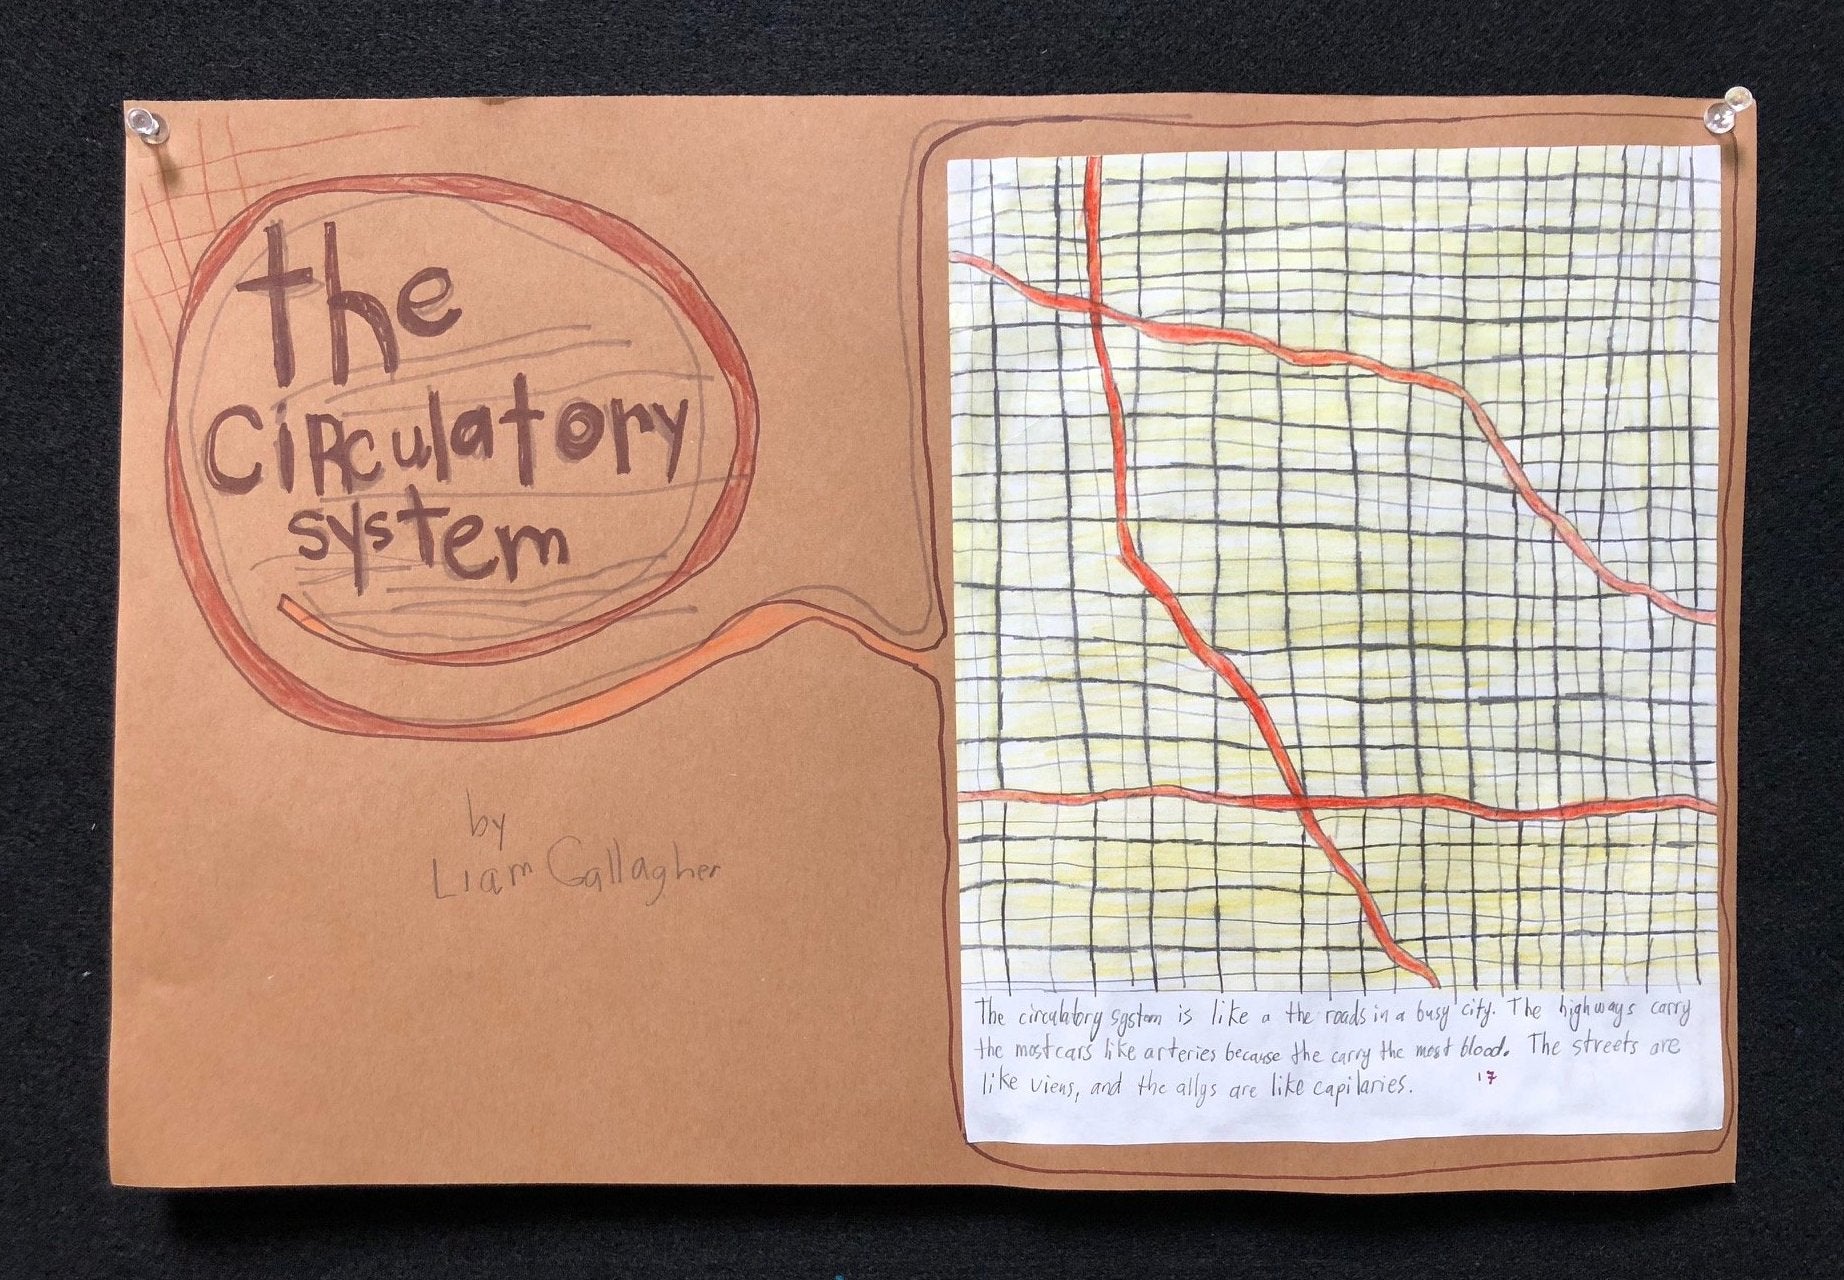 the
CiRculatory
system
by
Liam Gallagher
The circulatory system is like a the roads in a busy city. The highways carry
the most cars like arteries because the carry the most blood. The streets are
like viens, and the allys are like capilaries. 17